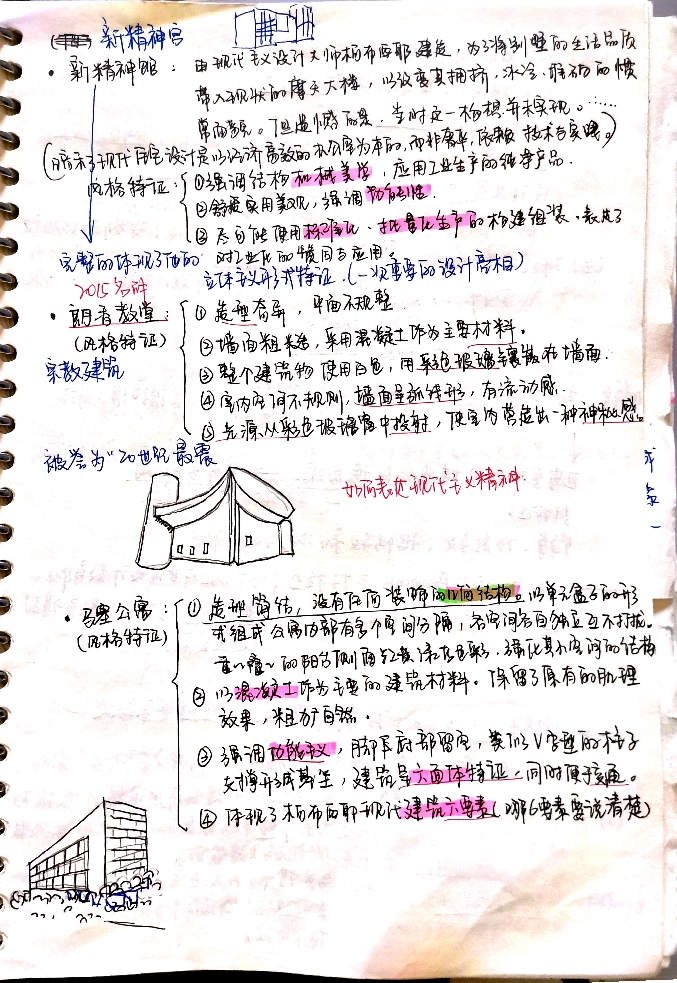 新精神宫
• 新精神馆：由现代主义设计大师柯布西耶建造，为了将别墅的生活品质
带入现状的摩天大楼，以改变其拥挤，冰冷，的惯
常面貌。但遗憾的是，当时这一构想并未实现。……
(暗示了现代住宅设计是以经济高效的办公室为本的，而非奢华，依赖技术与实践。)
风格特征：①强调结构机械美学，应用工业生产的纯净产品.
②舒适实用美观，强调功能性.
③尽可能使用标准化、批量化生产的构建组装。表达了
对工业化的赞同与应用。
完整的体现了他的立体主义形式特征.(一次重要的设计亮相)
2015名解
• 朗香教堂：①造型奇异，平面不规整.
(风格特征) ②墙面粗糙，采用混凝土作为主要材料。
宗教建筑 ③整个建筑物使用白色，用彩色玻璃镶嵌在墙面.
④室内空间不规则，墙面呈弧线形，有流动感.
⑤光源从彩色玻璃窗中投射，使室内营造出一种神秘感.
被誉为"20世纪最震
如何表达现代主义精神.
• 马赛公寓：①造型简结，没有任何装饰的几何结构。以单元盒子的形
(风格特征) 式组成公寓内部有多个空间分隔，各空间各自独立互不打扰。
的阳台侧面红黄绿蓝色彩，强化其小空间的结构
②以混凝土作为主要的建筑材料。保留了原有的肌理
效果，粗犷自然.
③强调功能主义，脚下底部留空，类似V字型的柱子
支撑形成基座，建筑呈六面体特征.同时便于交通。
④体现了柯布西耶现代建筑六要素(哪6要素要说清楚)